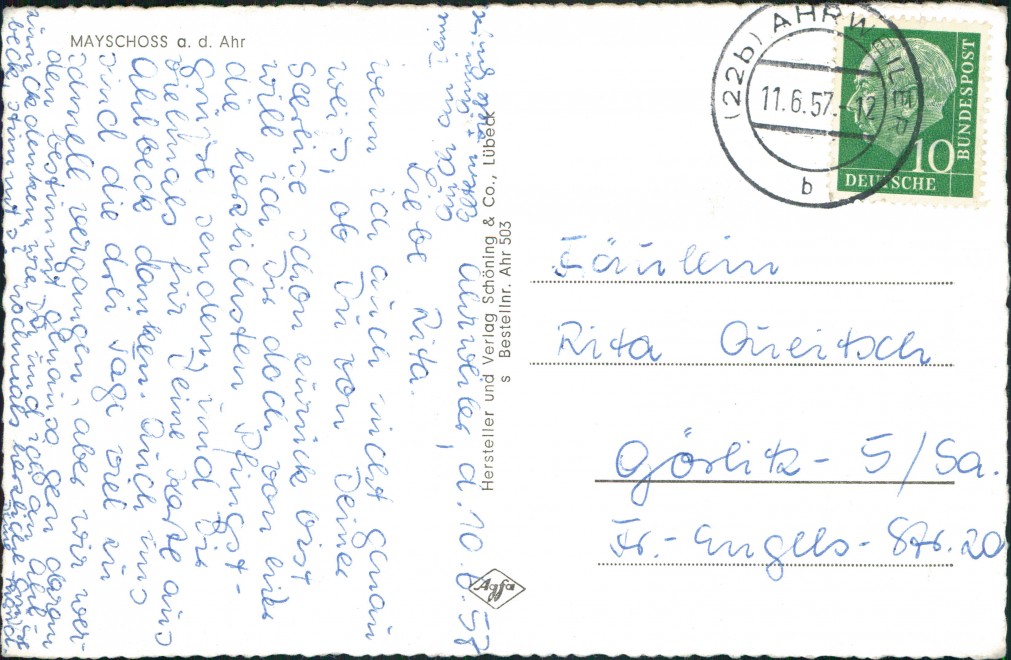 MAYSCHOSS a. d. Ahr
Ahrweiler, d. 10.6.57
Liebe Rita.
wenn ich auch nicht genau
weiss, ob Du von Deiner
Seereise schon zurück bist
will ich Dir doch von hier
die herzlichsten Pfingst-
Grüsse senden und Dir
vielmals für Deine Karte aus
Ahlbeck danken. Auch uns
sind die drei Tage viel zu
schnell vergangen, aber wir wer-
den bestimmt genau so gern daran
zurückdenken, wie Du und ich an Ahl-
beck. Nimm nochmals herzliche Grüsse
Hersteller und Verlag Schöning & Co., Lübeck
s Bestellnr. Ahr 503
Agfa
(22b) AHRWEILER
11.6.57.-12
b
DEUTSCHE
BUNDESPOST
10
Fräulein
Rita Queitsch
Görlitz - 5/Sa.
Fr.-Engels-Str. 20